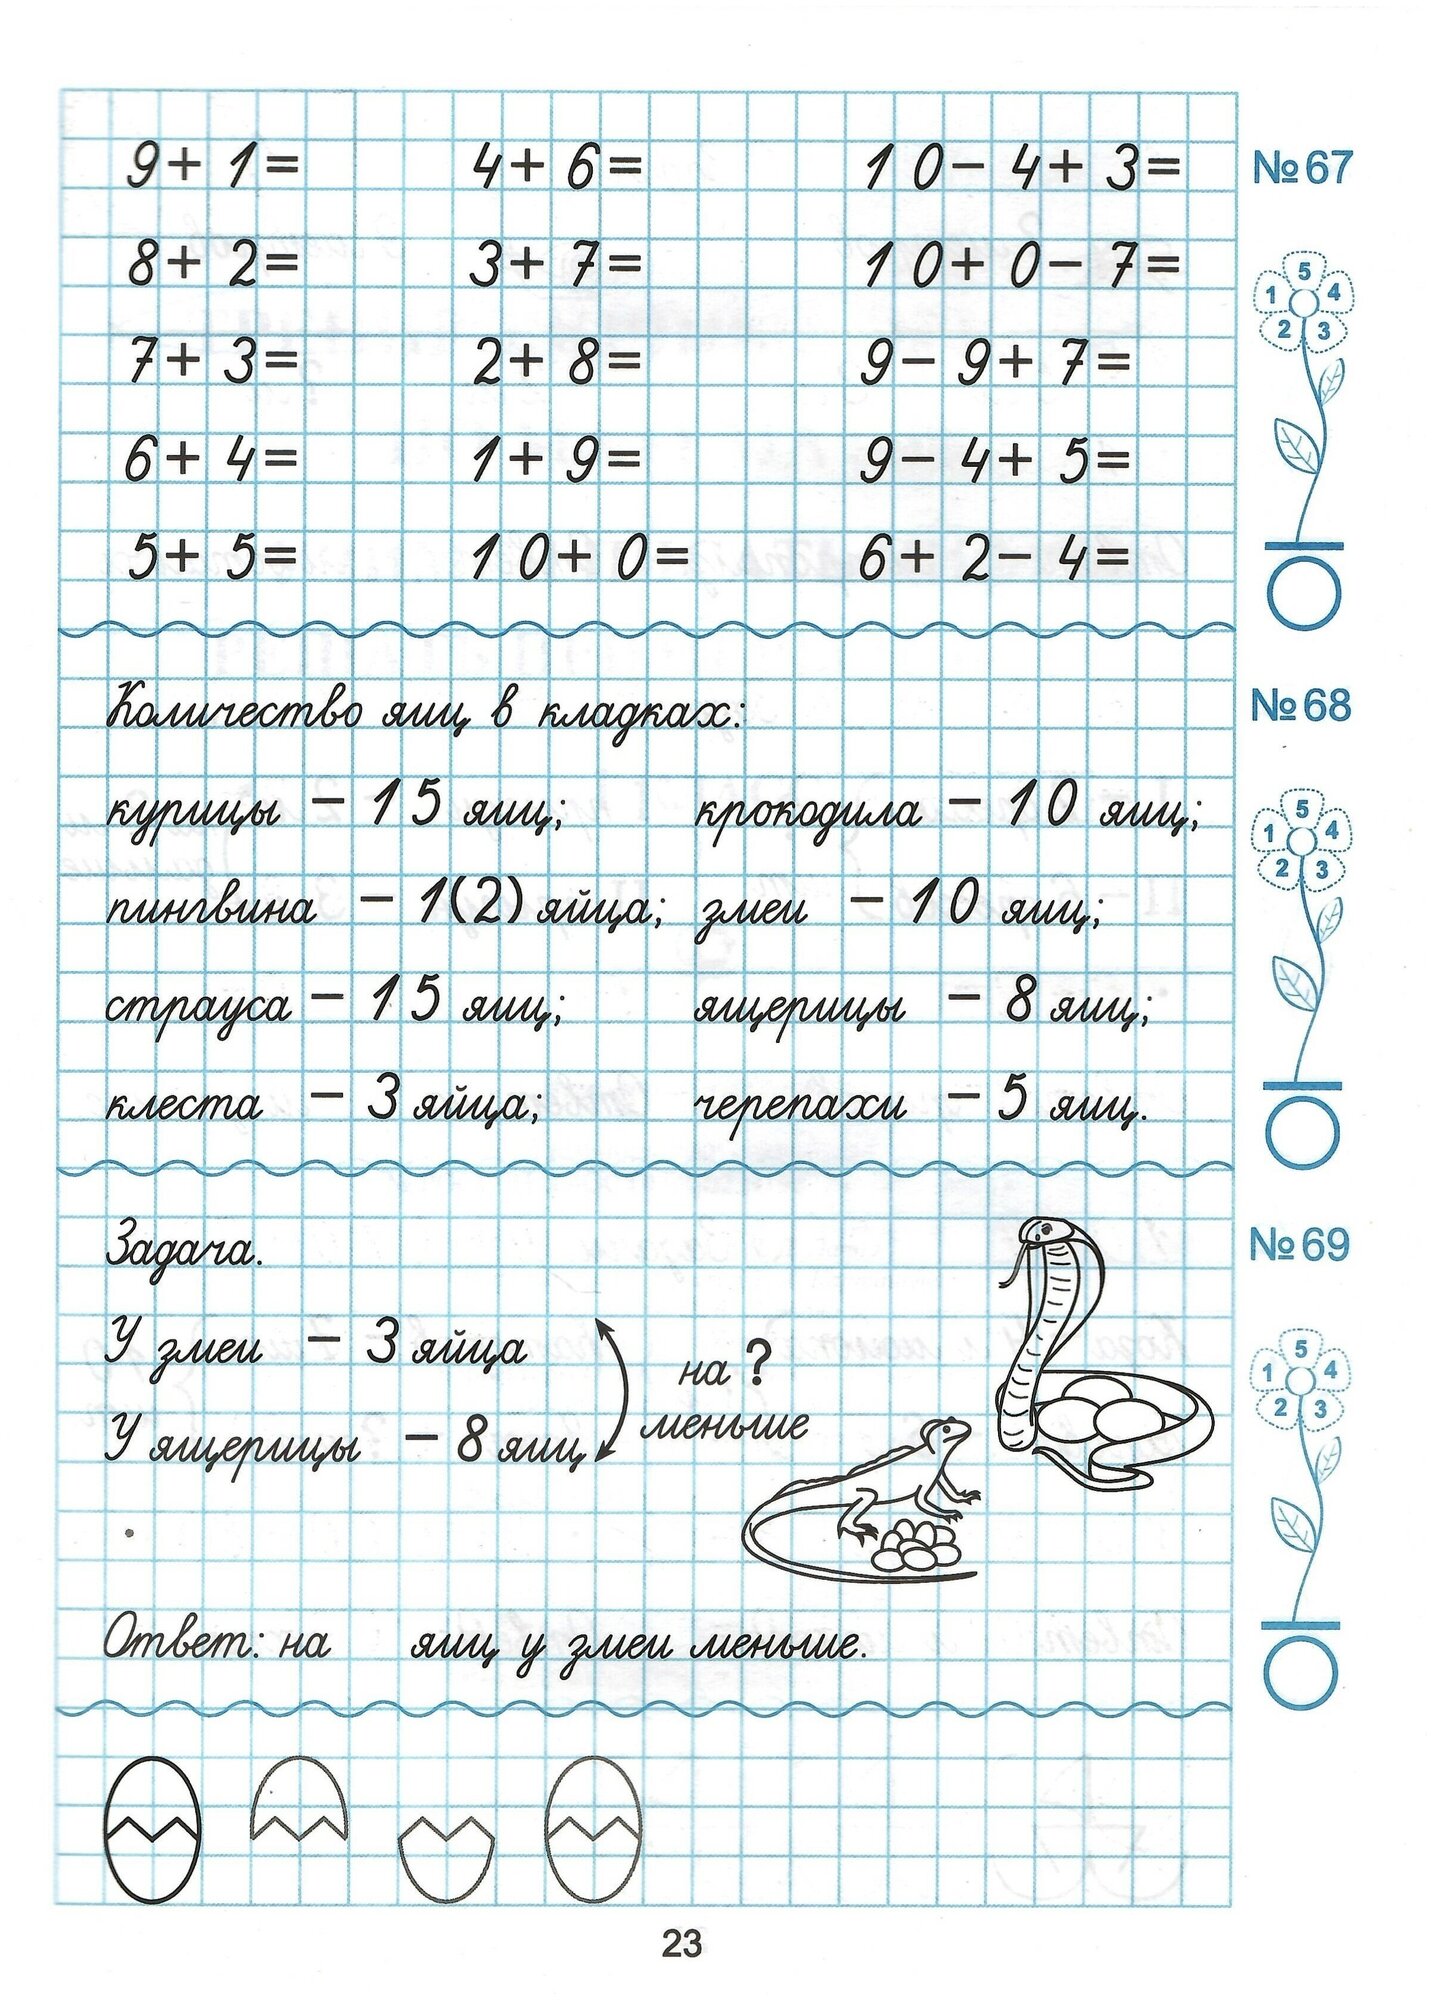 9+ 1= 4+ 6= 10- 4+ 3= №67
8+ 2= 3+ 7= 10+ 0- 7=
7+ 3= 2+ 8= 9- 9+ 7=
6+ 4= 1+ 9= 9- 4+ 5=
5+ 5= 10+ 0= 6+ 2- 4=
1 2 3 4 5
Количество яиц в кладках: №68
курицы - 15 яиц; крокодила - 10 яиц;
пингвина - 1(2) яйца; змеи - 10 яиц;
страуса - 15 яиц; ящерицы - 8 яиц;
клеста - 3 яйца; черепахи - 5 яиц.
1 2 3 4 5
Задача. №69
У змеи - 3 яйца
У ящерицы - 8 яиц
на ?
меньше
1 2 3 4 5
Ответ: на яиц у змеи меньше.
23